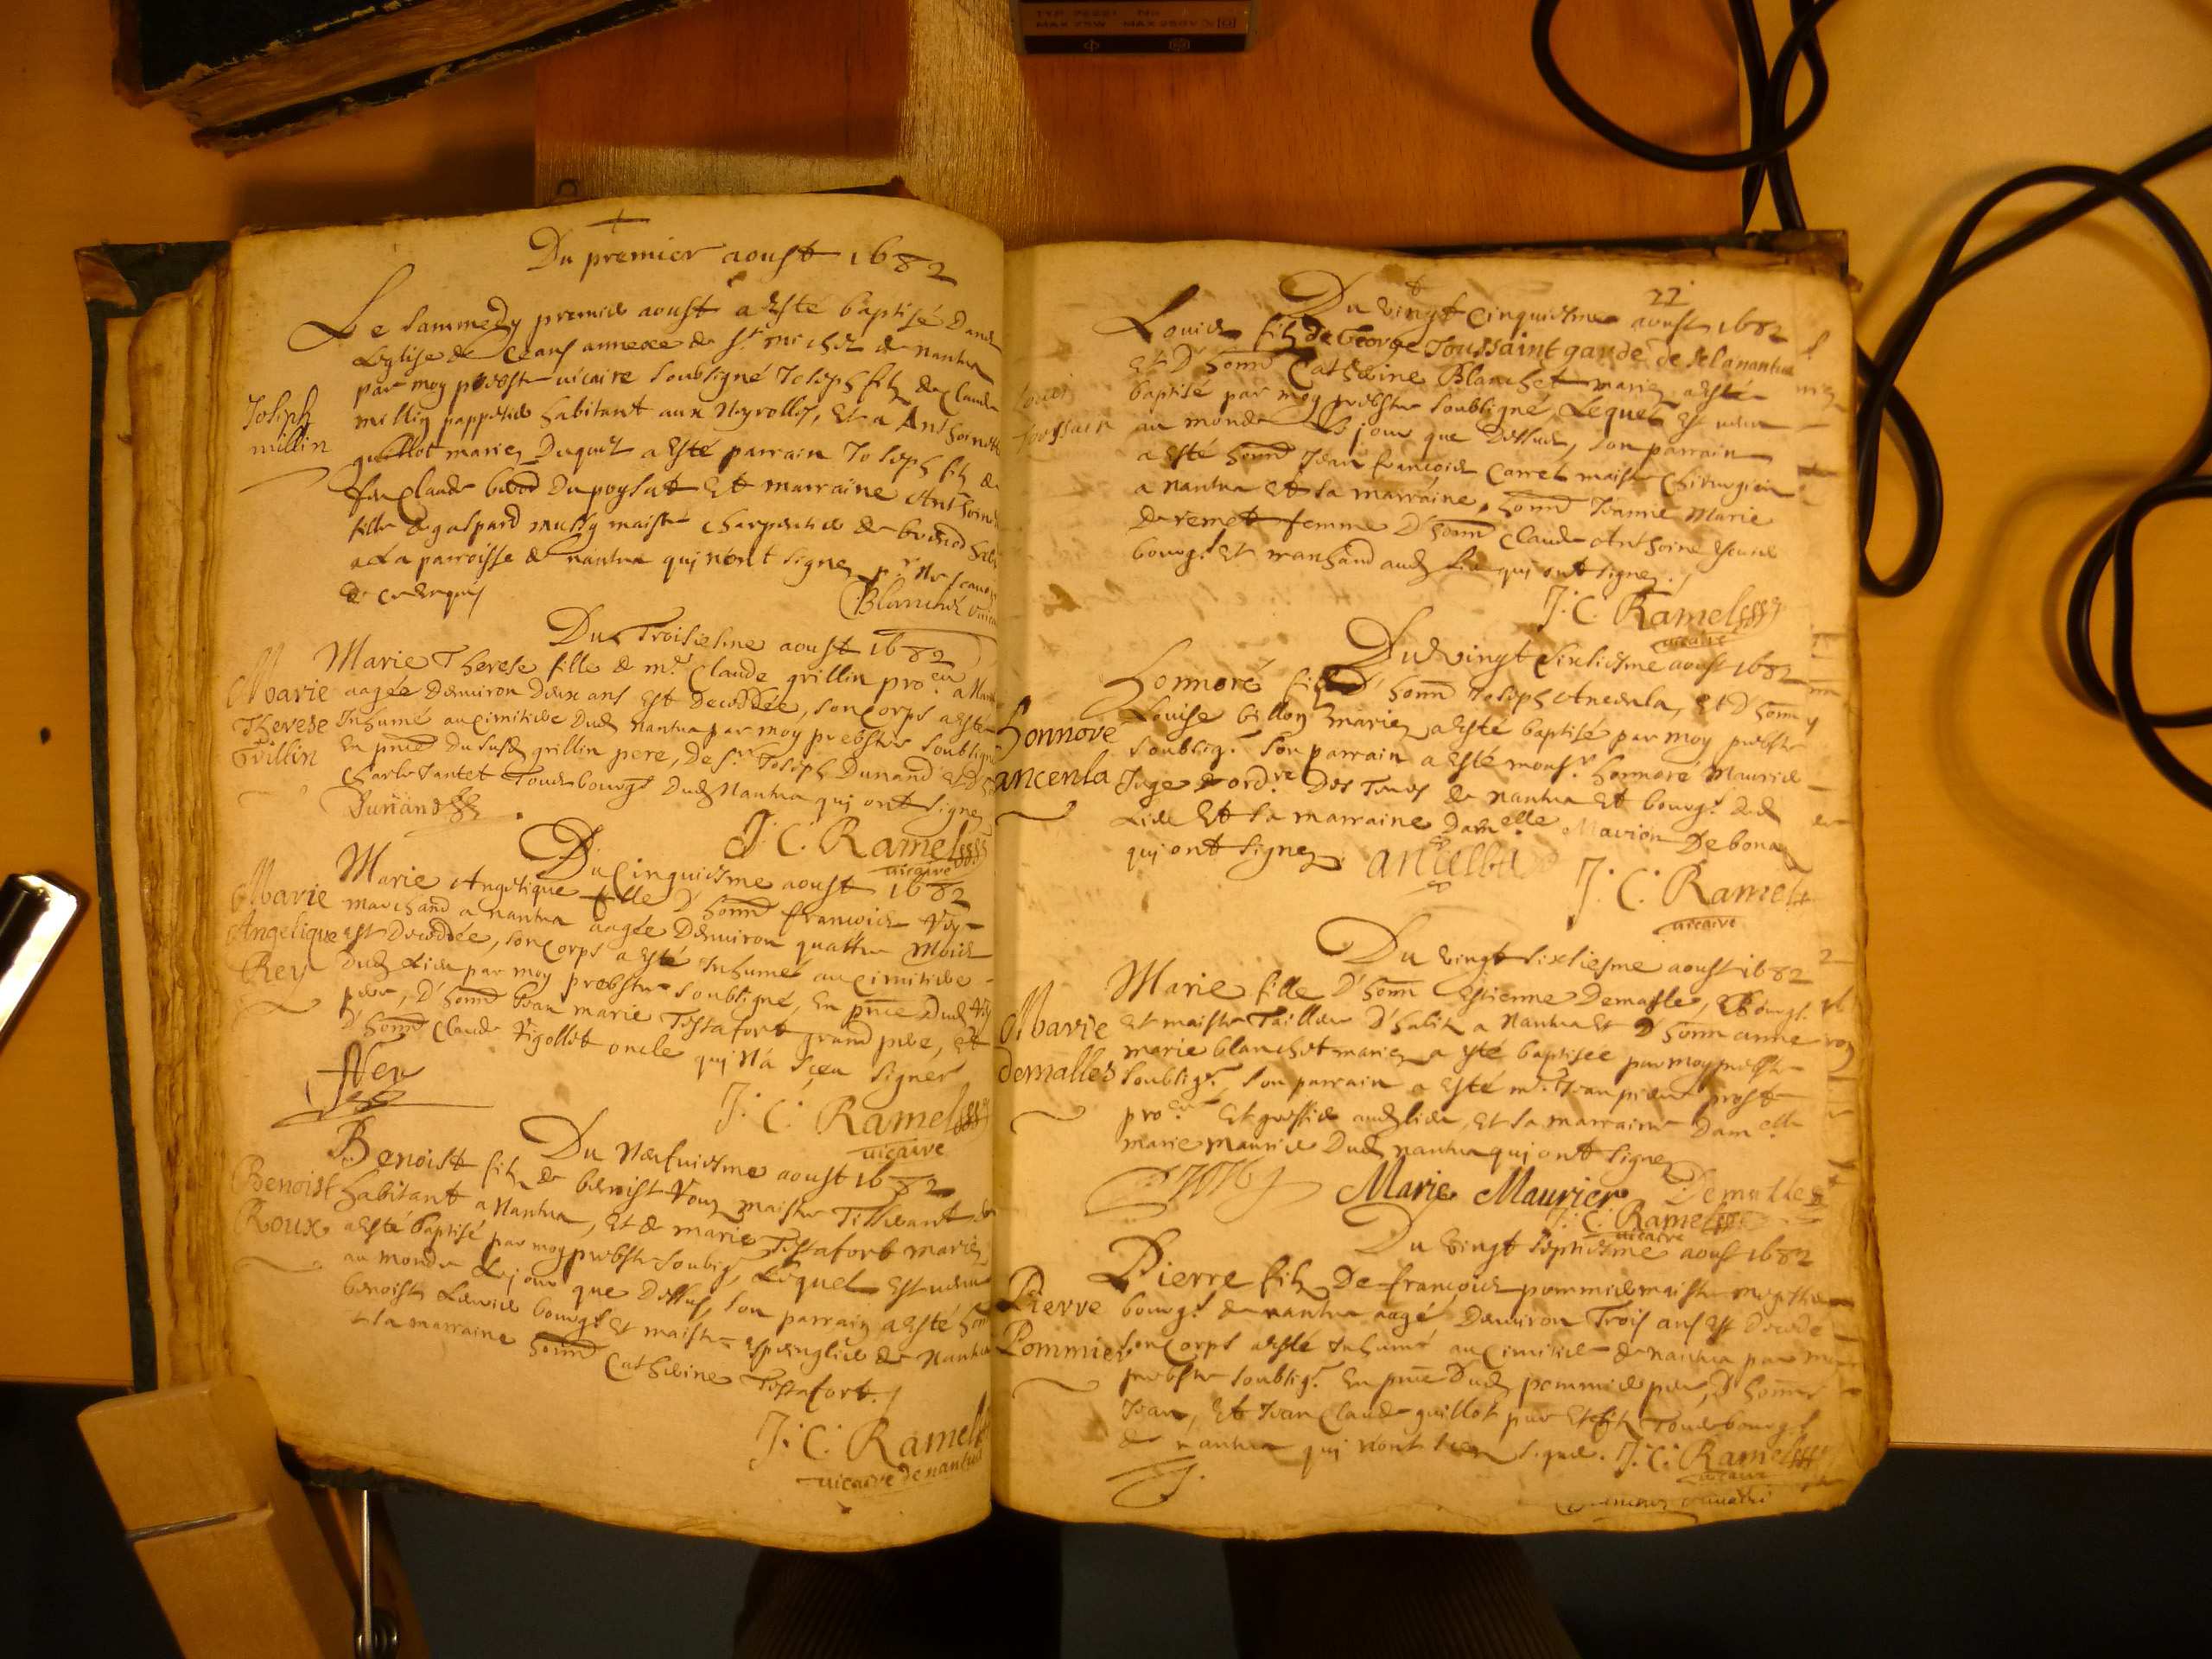 Du premier aoust 1682
Le sammedy premier aoust a esté baptisé dans
L'eglise de ceans annexe de st michel de nantua
par moy prebstre vicaire soubsigné Joseph filz de Claude
Joseph
millin
millin pappetier habitant aux Neyrolles, et a Anthoinette
guillot mariez Duquel a esté parrain Joseph filz de
feu Claude du poysat et marraine Anthoine
fille de gaspard mussy maistre charpentier de
a La parroisse de nantua qui n'ont signez pr ne scavoir
de ce enquis
Blanchet
Du Troisiesme aoust 1682
Marie Therese fille de mre Claude grillin proeur a
Marie
Therese
Grillin
aagée denviron deux ans est decedée, son corps a esté
Inhumé au cimitiere dudt Nantua par moy prebstre soubsigné
En pnce du susdt grillin pere, de sr Joseph Dunand et
Charle Jantet Tous bourgs dudt Nantua qui ont signez
Dunand
J. C. Ramel
vicaire
Du Cinquiesme aoust 1682
Marie Angelique fille D'honn francois Rey
Marie
Angelique
Rey
marchand a nantua aagée denviron quattre mois
est decedée, son corps a esté Inhumé au cimitiere
dudt Lieu par moy prebstre soubsigné, en pnce dudt Rey
pere, D'honn Jean marie Testafort grand pere, et
D'honn Claude Rigollet oncle qui n'a sçeu signer
Rey
J. C. Ramel
vicaire
Du Neufuiesme aoust 1682
Benoist filz de benoist Roux maistre Tisserant
Benoist
Roux
habitant a Nantua, et de marie Testafort mariez
a esté baptisé par moy prebstre soubsigné, Lequel est venu
au monde Le jour que dessus, son parrain a esté hon
benoist bourgs et maistre espinglier de Nantua
et sa marraine honn Catherine Testafort.
J. C. Ramel
vicaire de nantua
22
Du vingt Cinquiesme aoust 1682
Louis filz de George Toussaint garde de sel a nantua
Louis
Toussain
et D'honn Catherine Blanchet mariez a esté
baptisé par moy prebstre soubsigné, Lequel est venu
au monde Le jour que dessus, son parrain
a esté honn Jean francois Carrel maistre Chirurgien
a nantua et sa marraine, honn Jeanne Marie
Deremet femme D'honn Claude Anthoine
bourgs et marchand audt Lieu qui ont signez.
J. C. Ramel
vicaire
Du vingt sixsiesme aoust 1682
Honnoré filz D'honn Joseph Ancenla, et D'honn
Honnore
ancenla
Louise billon mariez a esté baptisé par moy prebstre
soubsigé. Son parrain a esté monsr honnoré Maurier
Juge ordre des Terres de nantua et bourgs dudt
Lieu et sa marraine Damelle Marion Debona
qui ont signez.
J. C. Ramel
vicaire
Du vingt sixsiesme aoust 1682
Marie fille D'honn Estienne Demasle, Bourgs.
Marie
demalles
et maistre Tailleur D'habitz a Nantua et D'honn anne
marie blanchet mariez a esté baptisée par moy prebstre
soubsigé, son parrain a esté mre Jean pierre prost
proeur Et greffier audt lieu, et sa marraine Damelle
marie maurier dudt nantua qui ont signez
Marie Maurier
Demalles
J. C. Ramel
vicaire
Du vingt septiesme aoust 1682
Pierre filz De francois pommier maistre
Pierre
Pommier
bourgs de nantua aagé denviron Trois ans est decedé
son Corps a esté Inhumé au cimitiere de nantua par moy
prebstre soubsigé. En pnce dudt pommier pere, D'honn
Jean, et Jean Claude guillot pere et filz Tous bourgs
de nantua qui n'ont sceu signer.
J. C. Ramel
vicaire